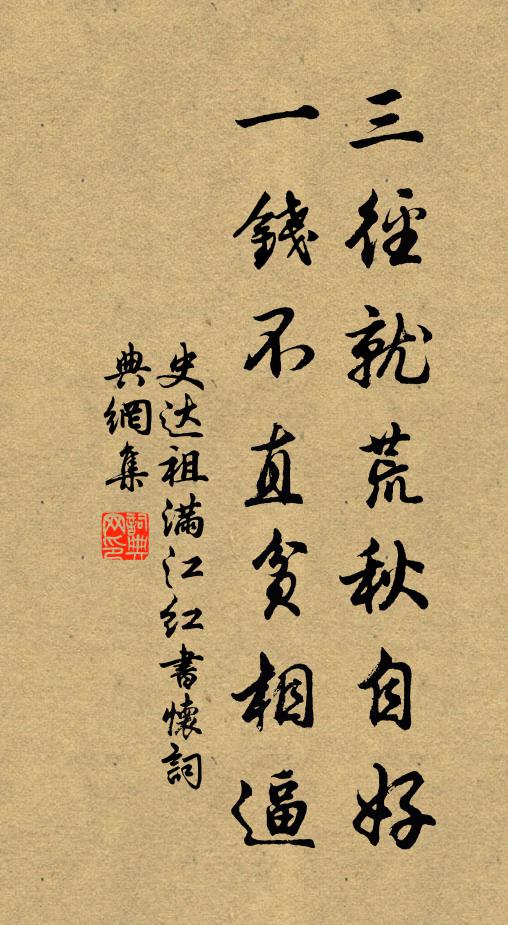 三徑就荒秋自好
一錢不直貧相逼
史达祖满江红書懷詞
典網集
詞典網印